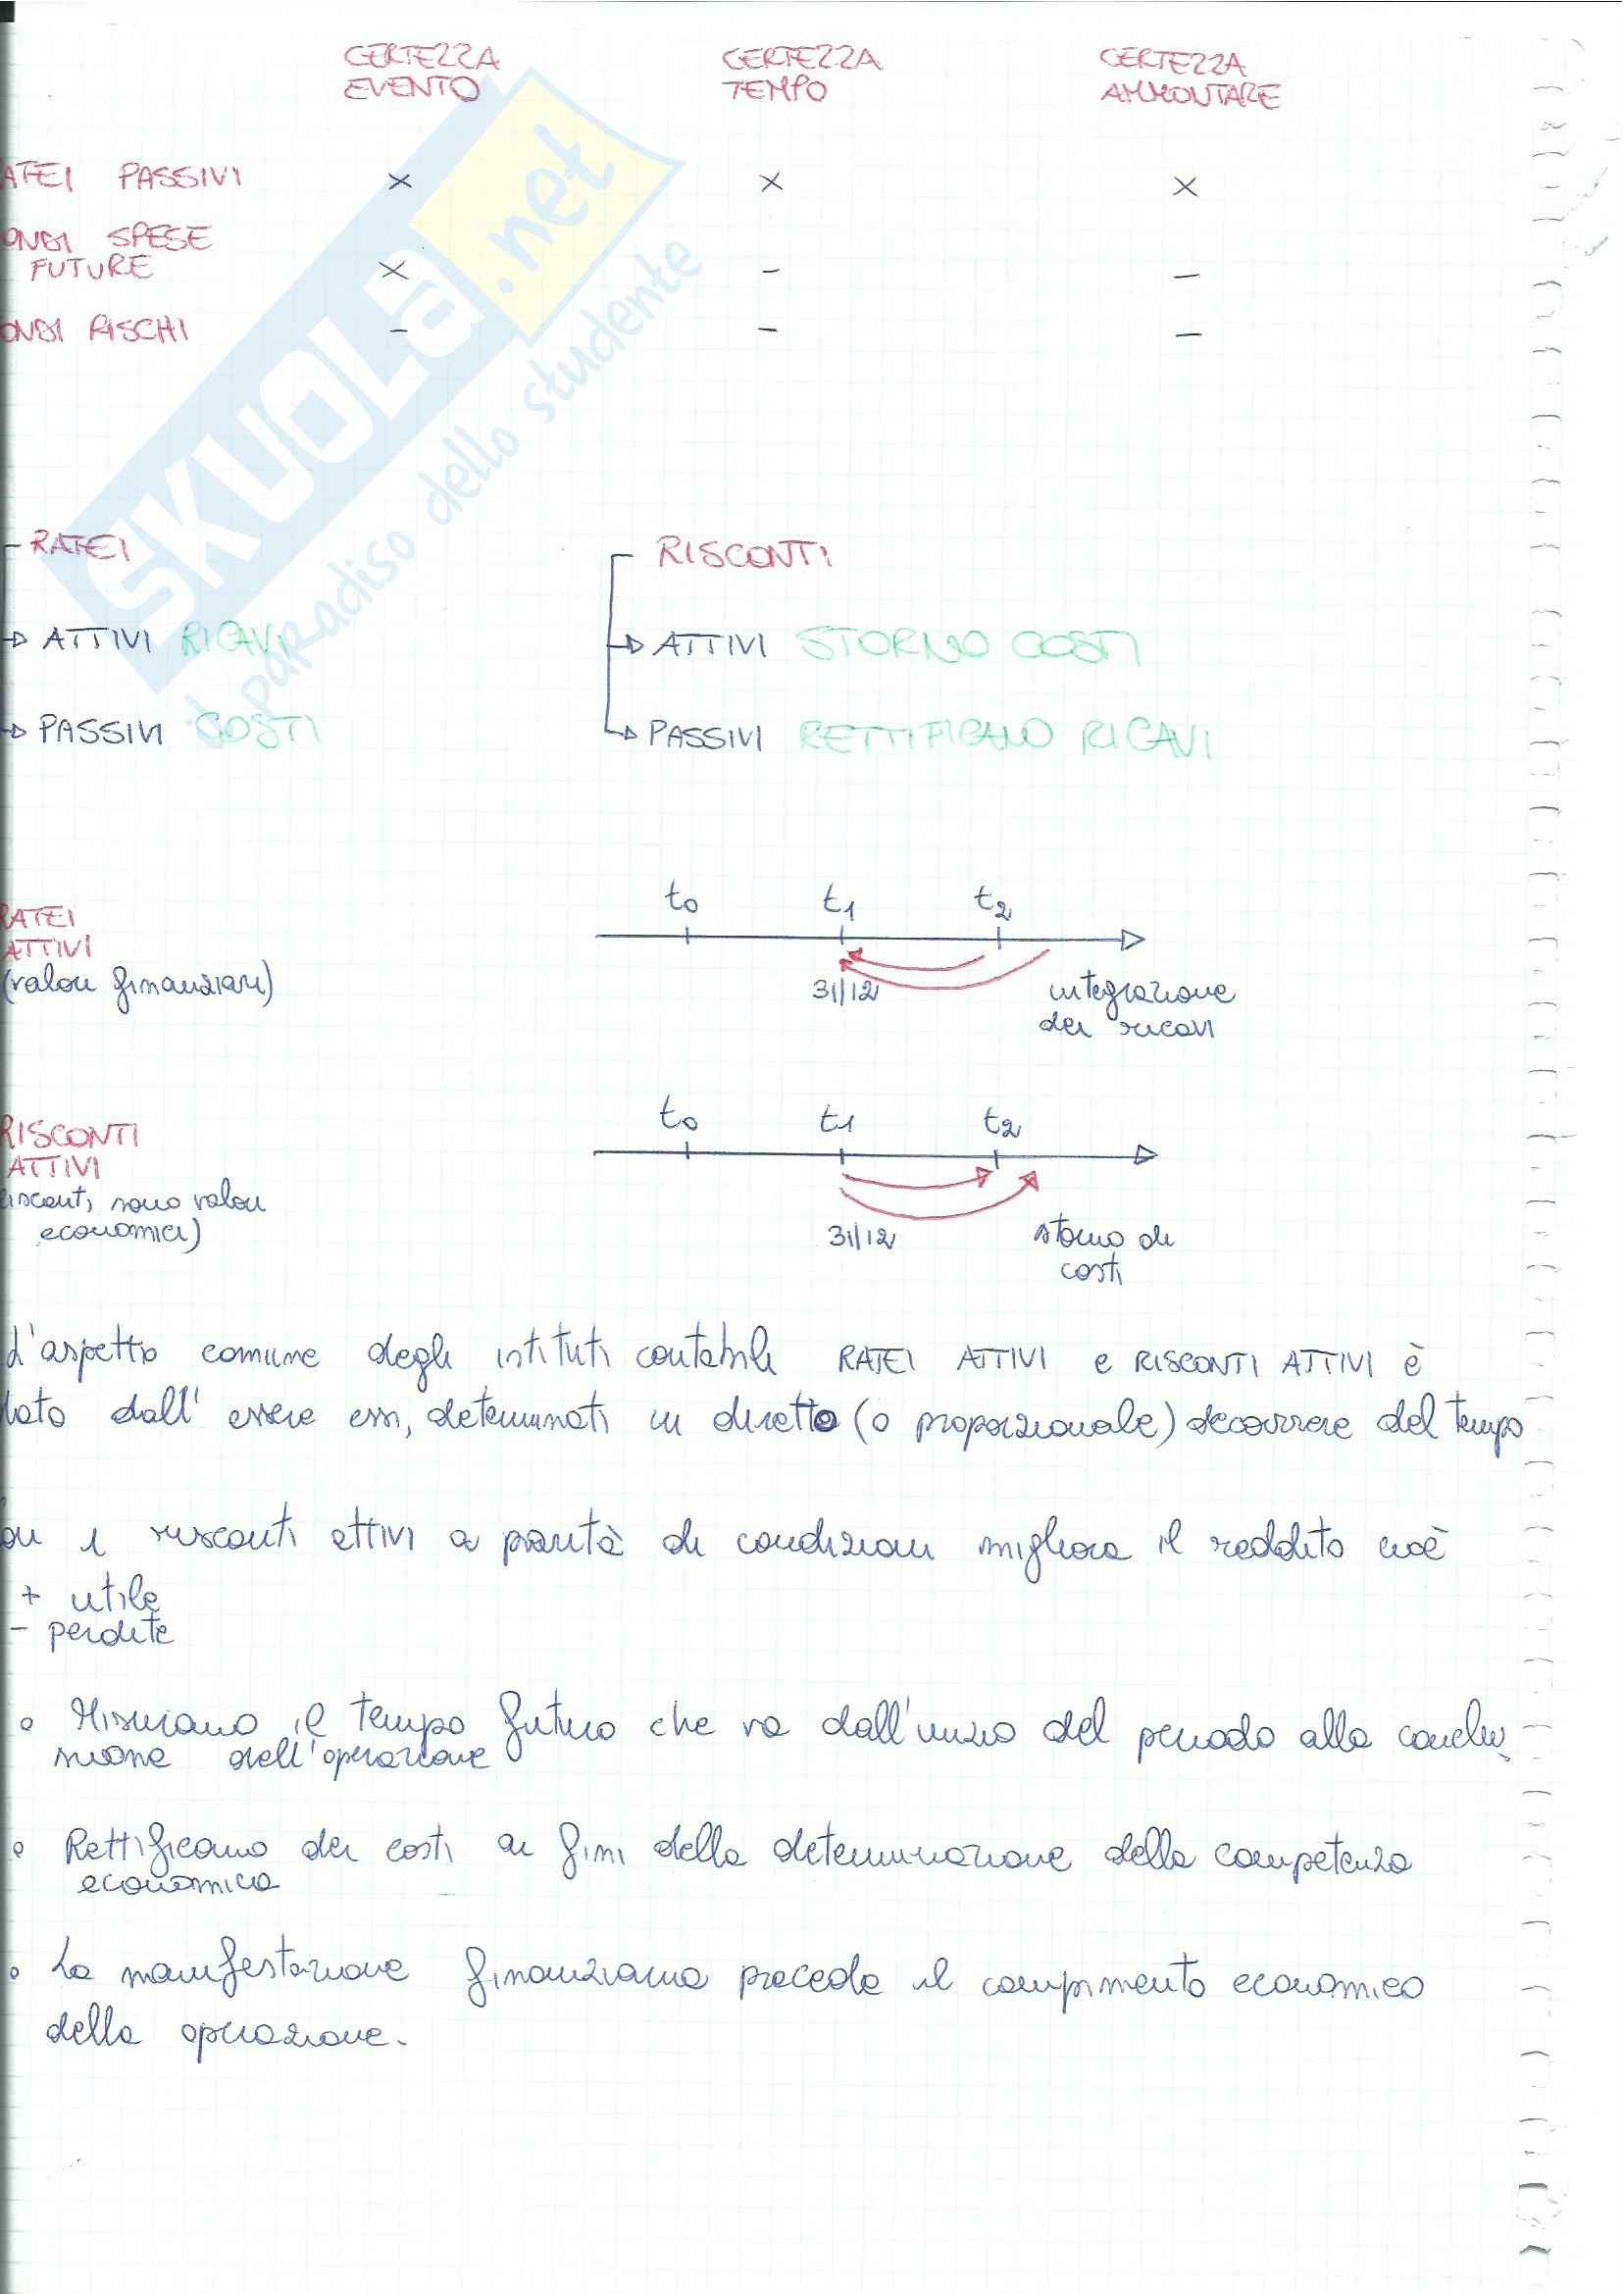 CERTEZZA CERTEZZA CERTEZZA
EVENTO TEMPO AMMONTARE
ATEI PASSIVI × × ×
ONDI SPESE
FUTURE × – –
ONDI RISCHI – – –
SKUOLA.net
il paradiso dello studente
RATEI RISCONTI
ATTIVI RICAVI ATTIVI STORNO COSTI
PASSIVI COSTI PASSIVI RETTIFICANO RICAVI
t0 t1 t2
RATEI
ATTIVI
(valori finanziari) 31/12 integrazione
dei ricavi
t0 t1 t2
RISCONTI
ATTIVI
risconti sono valori
economici) 31/12 storno di
costi
L'aspetto comune degli istituti contabili RATEI ATTIVI e RISCONTI ATTIVI è
dato dall' essere essi, determinati in diretto (o proporzionale) decorrere del tempo
on i risconti attivi a parità di condizioni migliora il reddito cioè
+ utile
– perdite
Misurano il tempo futuro che va dall'inizio del periodo alla conclu
sione dell'operazione
Rettificano dei costi ai fini della determinazione della competenza
economica
La manifestazione finanziaria precede il compimento economico
della operazione.